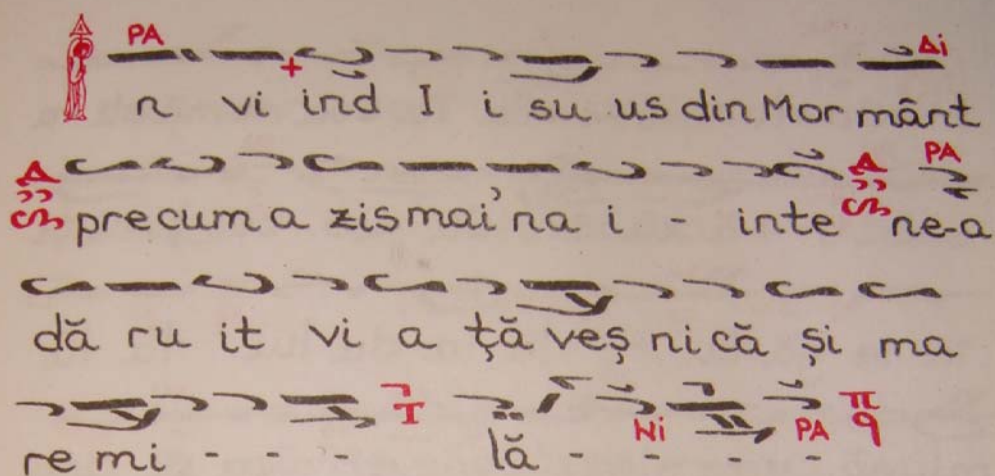 PA Δi
Învi ind I i su us din Mor mânt
PA
precum a zis mai'na i - inte ne-a
dă ru it vi a ță veș ni că și ma
Ni PA π q
re mi - - - lă - - - -